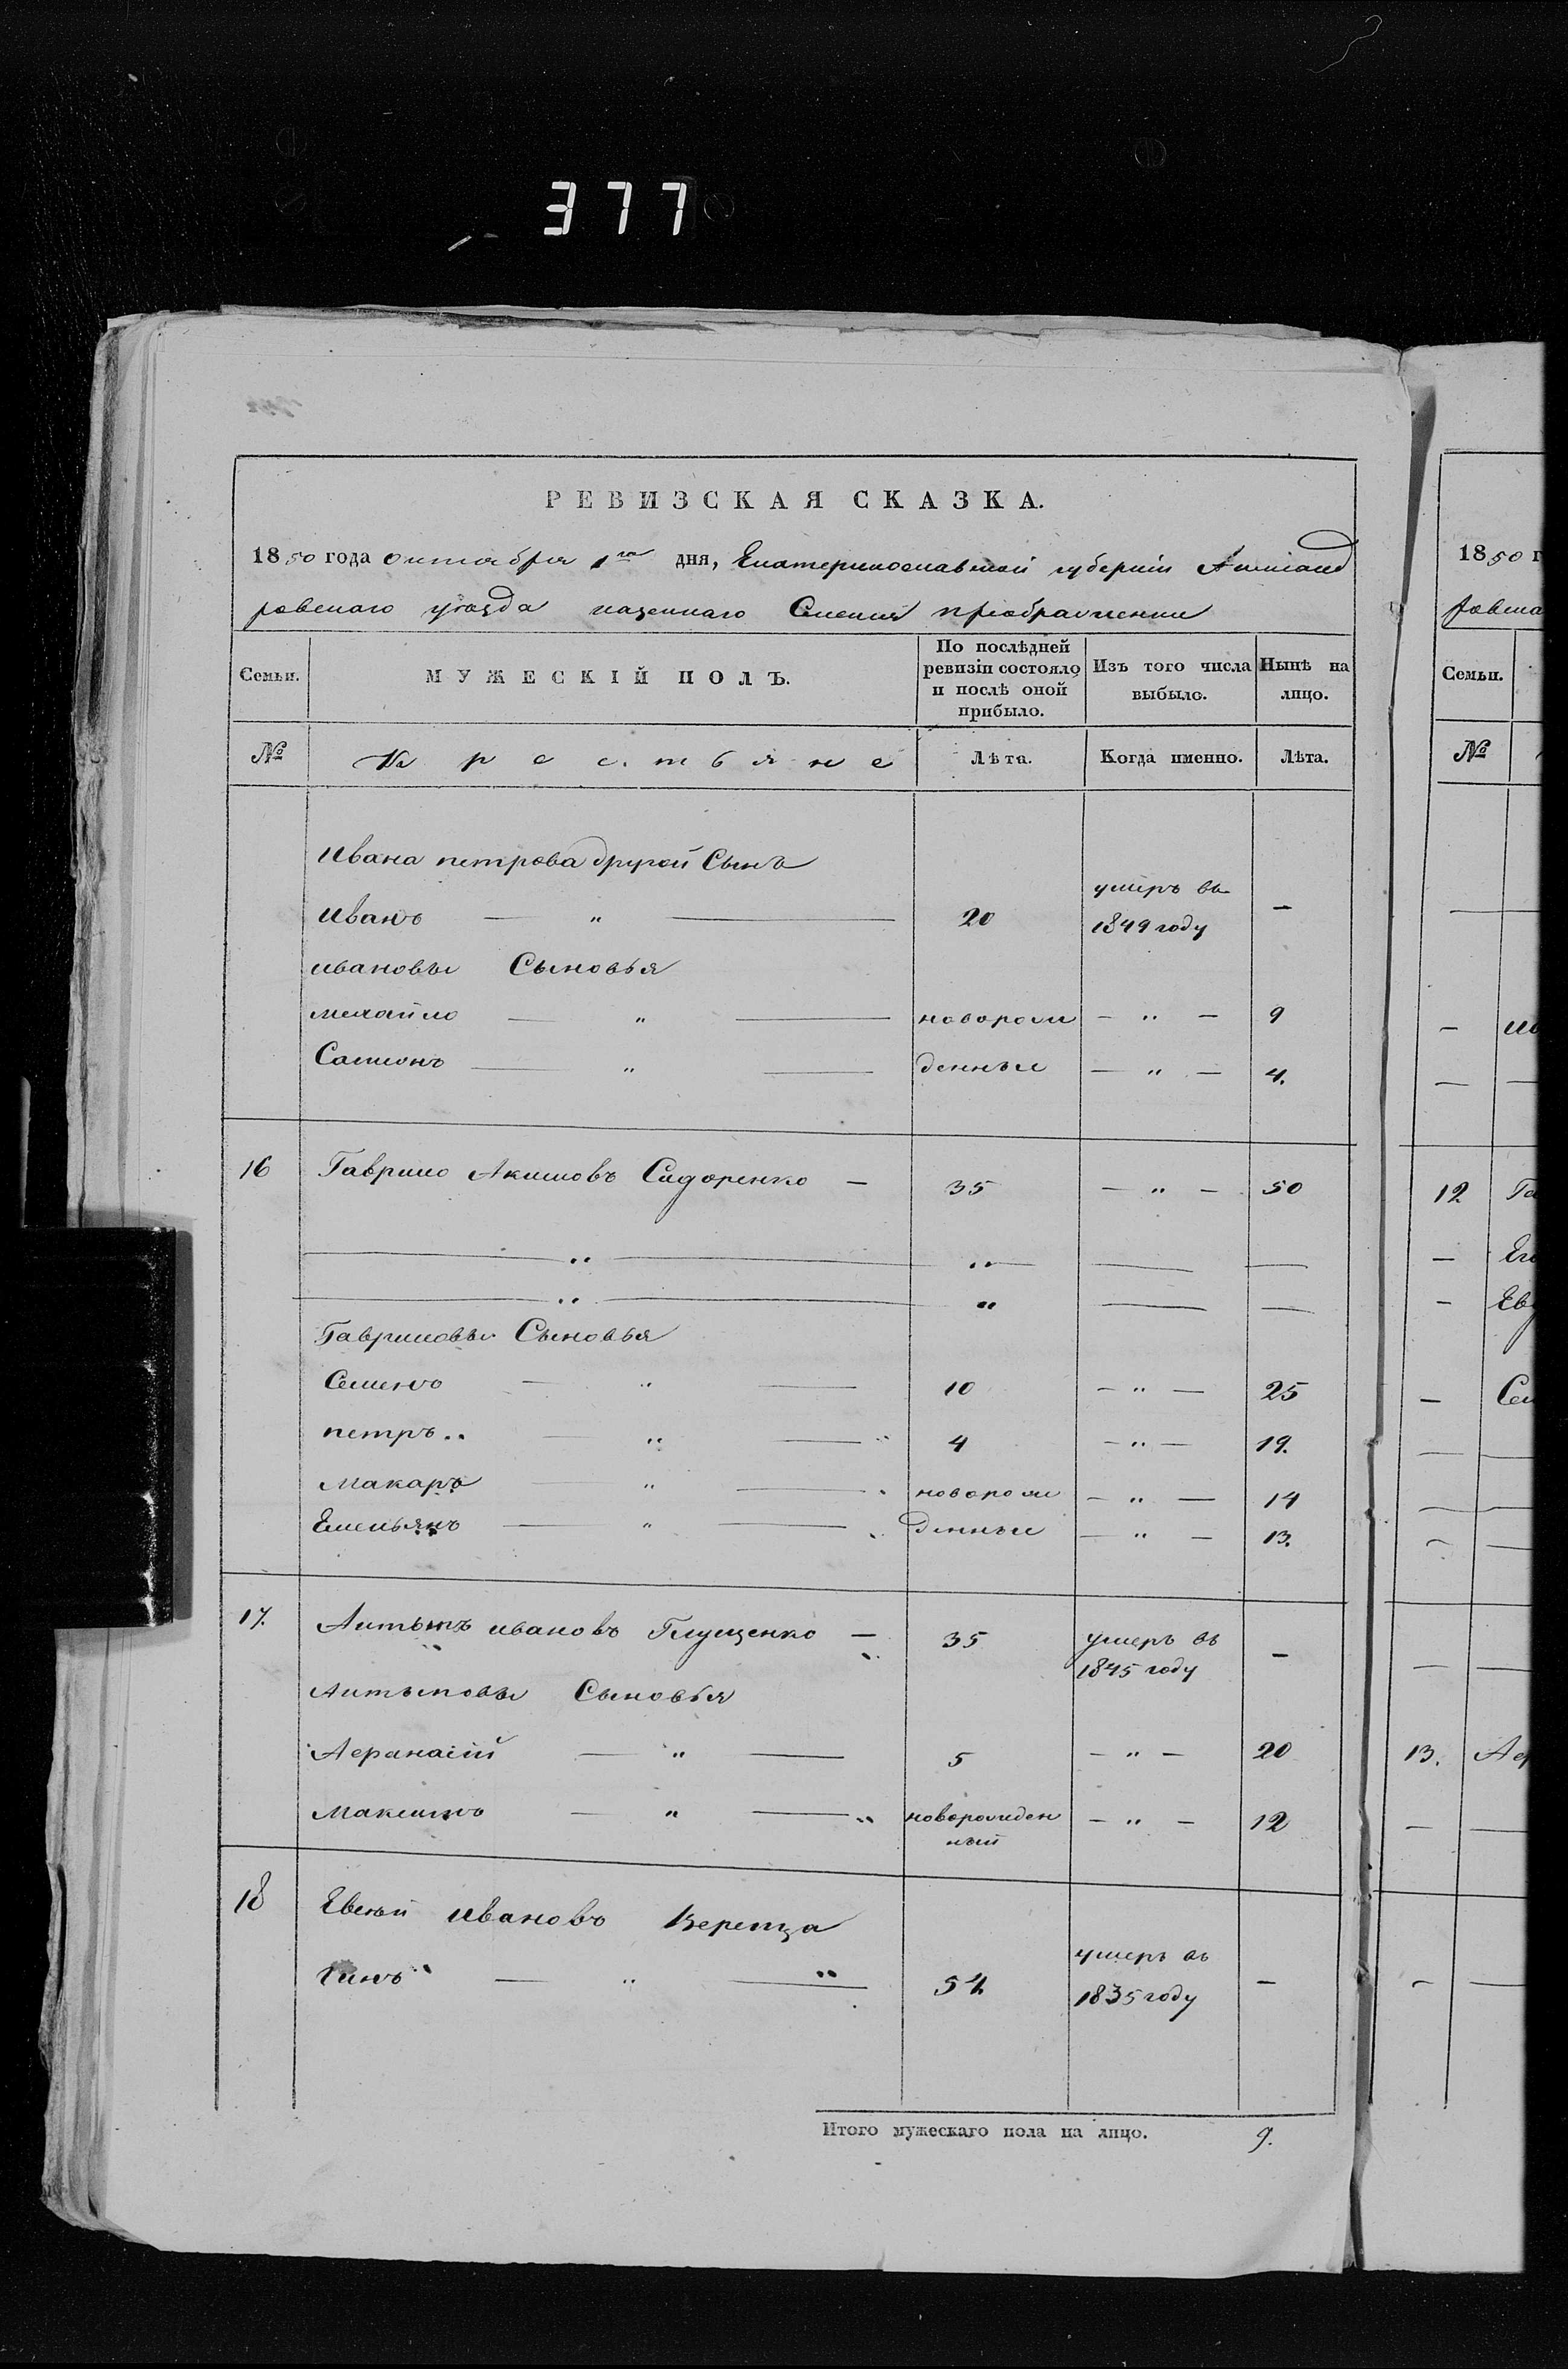 377
РЕВИЗСКАЯ СКАЗКА.
1850 года октября 1го дня, Екатеринославской губерніи Александ
ровскаго уѣзда казеннаго Селенія преображенки
Семьи. МУЖЕСКІЙ ПОЛЪ. По послѣдней ревизіи состояло и послѣ оной прибыло. Изъ того числа выбыло. Нынѣ на лицо.
№ Крестьяне Лѣта. Когда именно. Лѣта.
Ивана петрова другой Сынъ
Иванъ — " — 20 умеръ въ 1849 году —
ивановы Сыновья
михайло — " — новорож — " — 9
Самсонъ — " — денные — " — 4.
16 Гаврило Акимовъ Сидоренко — 35 — " — 50
— " — " — —
— " — " — —
Гавриловы Сыновья
Семенъ — " — 10 — " — 25
петръ — " — 4 — " — 19.
Макаръ — " — новорож — " — 14
Емельянъ — " — денные — " — 13.
17. Антыпъ ивановъ Глущенко — 35 умеръ въ 1845 году —
Антыповы Сыновья
Афанасій — " — 5 — " — 20
Максимъ — " — новорожден ный — " — 12
18 Евсѣй ивановъ
— " — 54. умеръ въ 1835 году —
Итого мужескаго пола на лицо. 9.
1850 г
ровска
Семьи.
№
12
13.